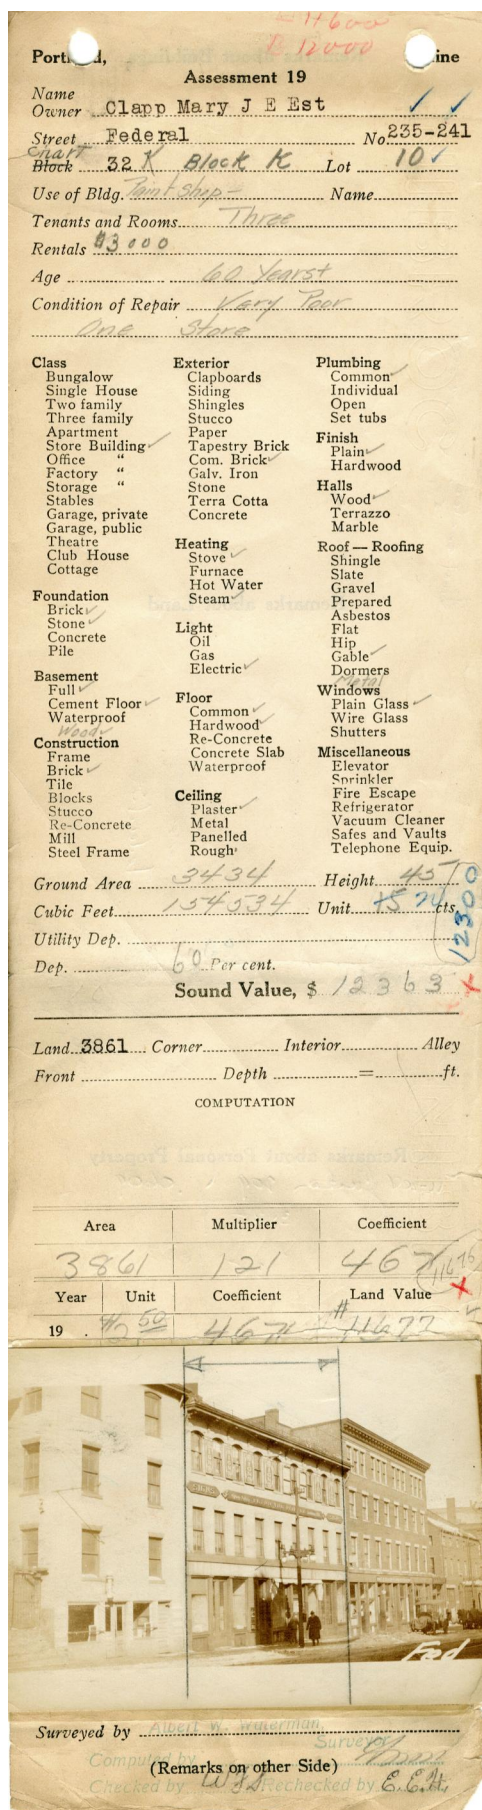 L 11600
B 12000
Portland, Maine
Assessment 19
Name
Owner Clapp Mary J E Est
Street Federal No 235-241
Chart
Block 32 K Block K Lot 10
Use of Bldg. Paint Shop - Name
Tenants and Rooms Three
Rentals $3000
Age 60 Years±
Condition of Repair Very Poor
One Store
Class
Bungalow
Single House
Two family
Three family
Apartment
Store Building ✓
Office "
Factory "
Storage "
Stables
Garage, private
Garage, public
Theatre
Club House
Cottage
Foundation
Brick ✓
Stone ✓
Concrete
Pile
Basement
Full ✓
Cement Floor ✓
Waterproof
Wood ✓
Construction
Frame
Brick ✓
Tile
Blocks
Stucco
Re-Concrete
Mill
Steel Frame
Exterior
Clapboards
Siding
Shingles
Stucco
Paper
Tapestry Brick
Com. Brick ✓
Galv. Iron
Stone
Terra Cotta
Concrete
Heating
Stove ✓
Furnace
Hot Water
Steam ✓
Light
Oil
Gas
Electric ✓
Floor
Common ✓
Hardwood ✓
Re-Concrete
Concrete Slab
Waterproof
Ceiling
Plaster ✓
Metal
Panelled
Rough
Plumbing
Common ✓
Individual
Open
Set tubs
Finish
Plain ✓
Hardwood
Halls
Wood ✓
Terrazzo
Marble
Roof — Roofing
Shingle
Slate
Gravel
Prepared
Asbestos
Flat
Hip
Gable ✓
Dormers
Metal
Windows
Plain Glass ✓
Wire Glass
Shutters
Miscellaneous
Elevator
Sprinkler
Fire Escape
Refrigerator
Vacuum Cleaner
Safes and Vaults
Telephone Equip.
Ground Area 3434 Height 45
Cubic Feet 154534 Unit 20 cts.
12300
Utility Dep.
Dep. 60 Per cent.
Sound Value, $ 12363
Land 3861 Corner Interior Alley
Front Depth = ft.
COMPUTATION
Area Multiplier Coefficient
3861 121 4671
11676
Year Unit Coefficient Land Value
19 . $2 50 4671 $11677
Fed
Surveyed by Albert W. Waterman
Surveyor
Computed by
(Remarks on other Side)
Checked by Rechecked by E.E.H.